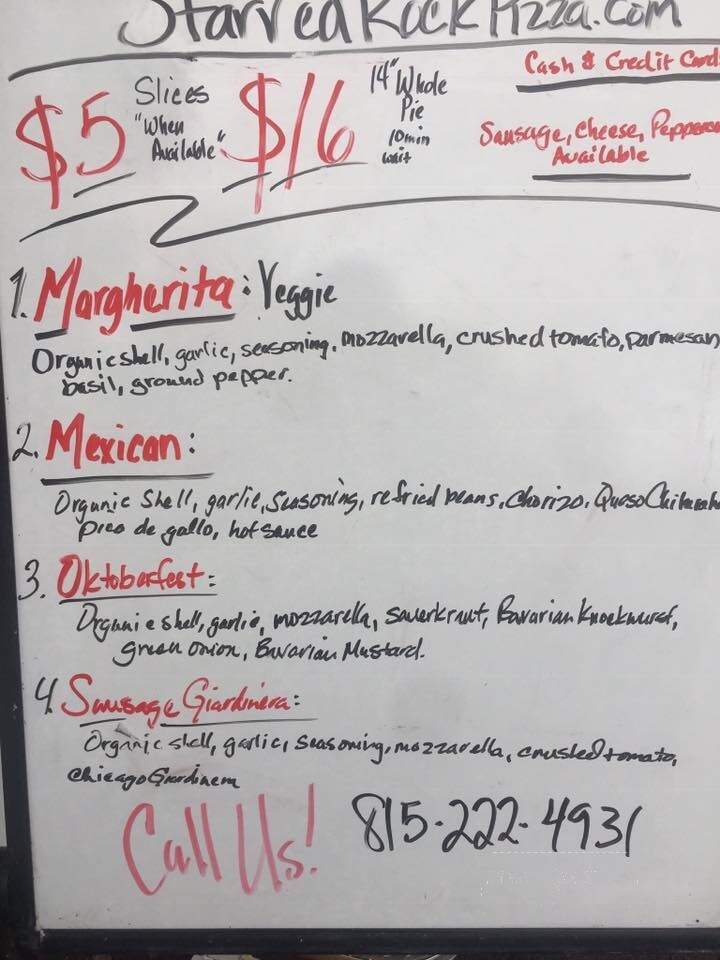 StarvedRockPizza.com
$5 Slices "When Available" $16 14" Whole Pie 10min wait
Cash & Credit Card
Sausage, Cheese, Pepperon
Available
1. Margherita: Veggie
Organic shell, garlic, seasoning, mozzarella, crushed tomato, parmesan
basil, ground pepper.
2. Mexican:
Organic Shell, garlic, Seasoning, refried beans, Chorizo, Queso
pico de gallo, hot sauce
3. Oktoberfest:
Organic shell, garlic, mozzarella, Sauerkraut, Bavarian Knockwurst,
green onion, Bavarian Mustard.
4. Sausage Giardinera:
Organic shell, garlic, Seasoning, mozzarella, crushed tomato,
Chicago Giardinera
Call Us! 815-222-4931